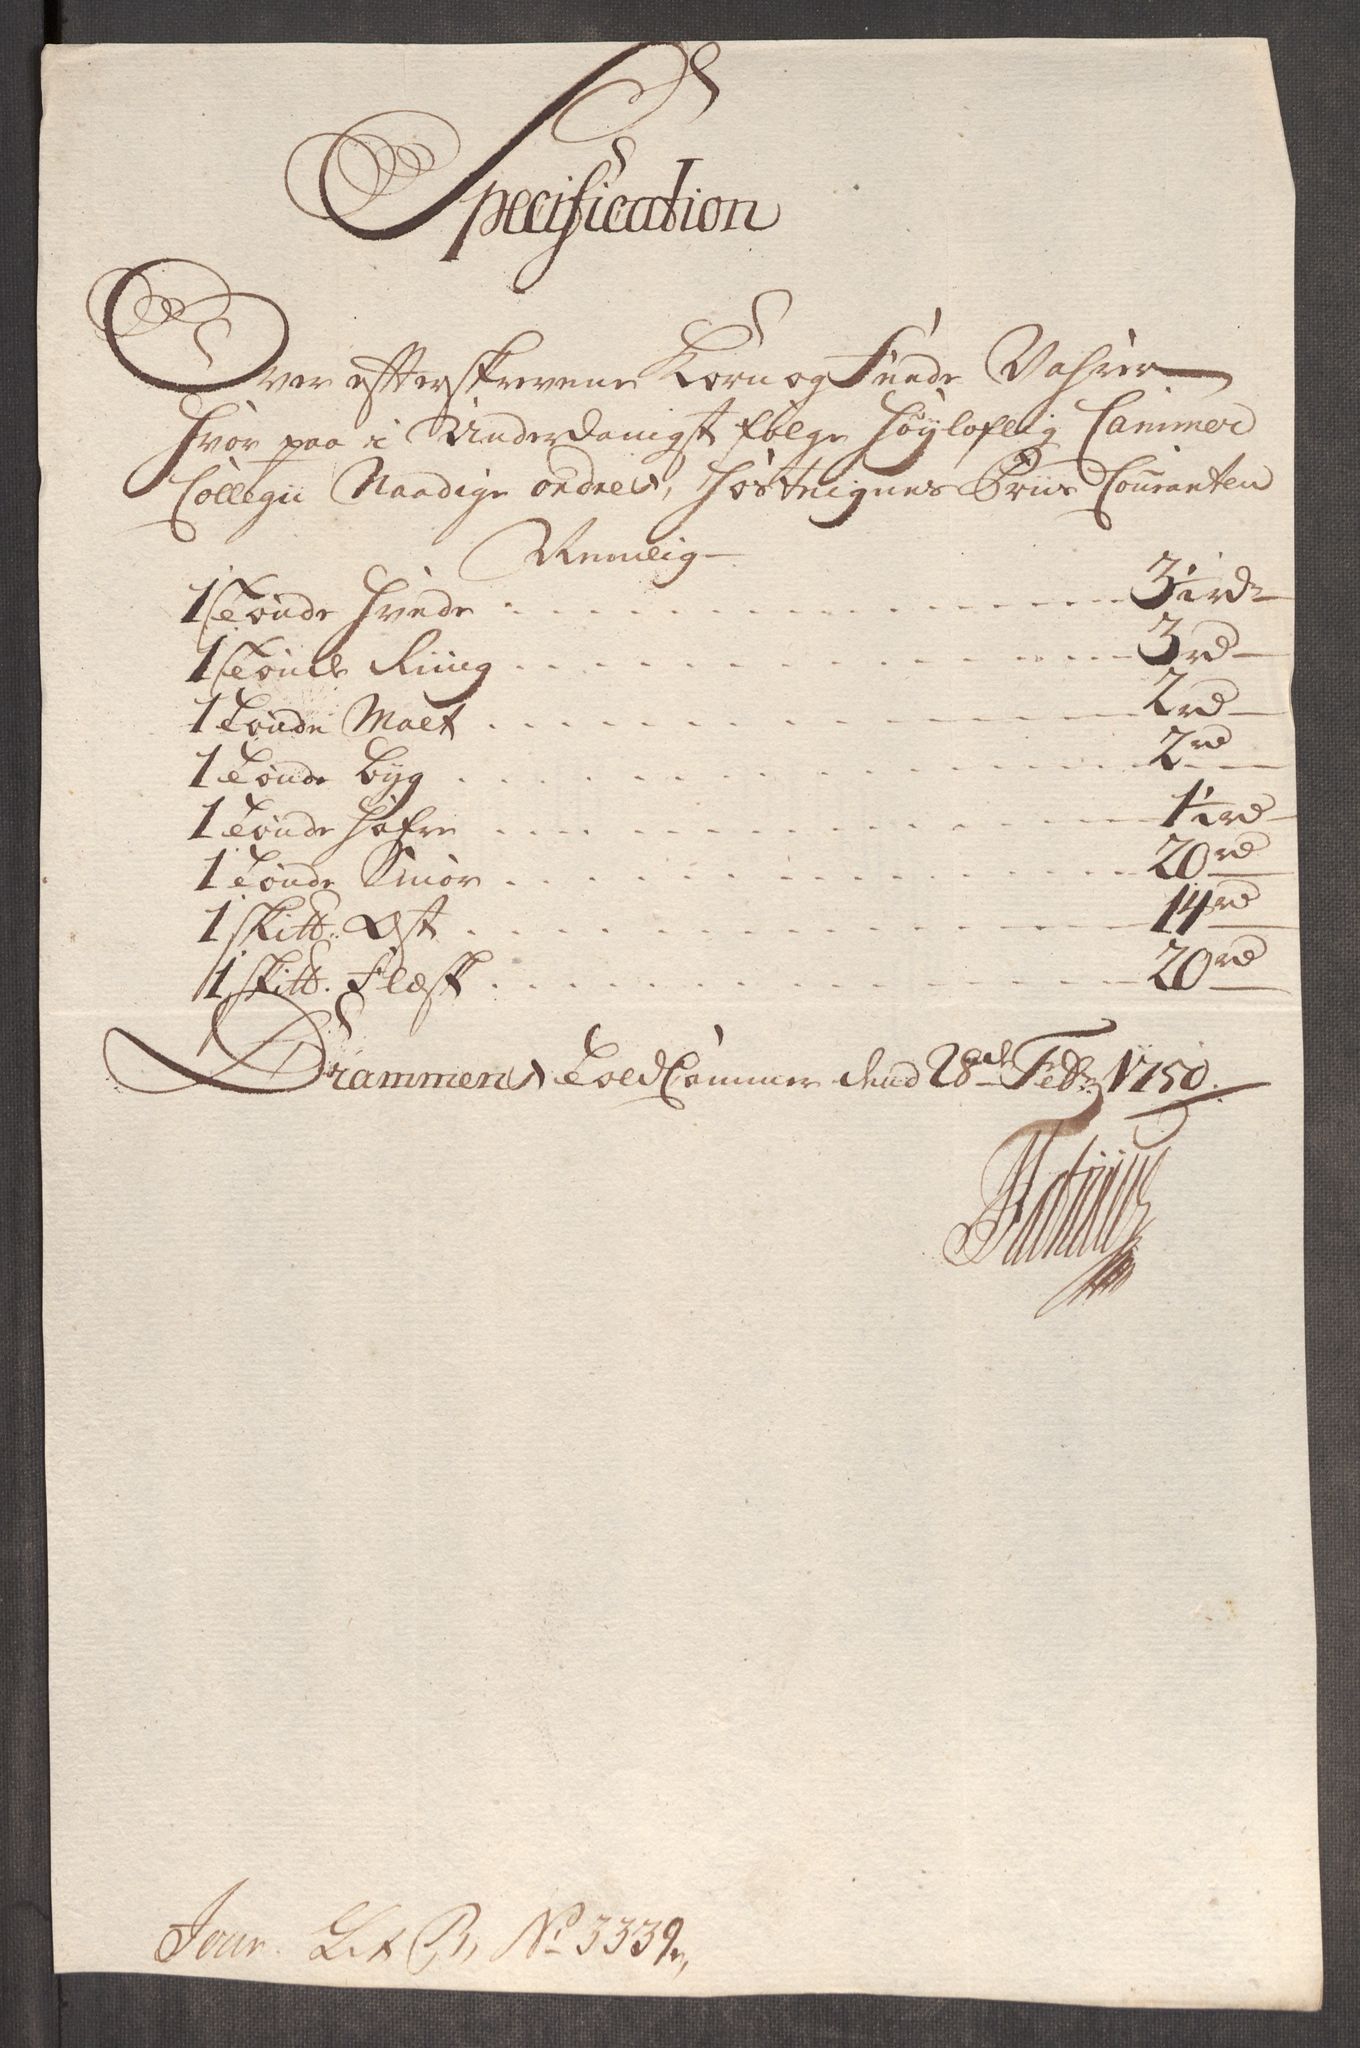 Specification
Over effterskrevene Korn og Feede Vahrer
Hvor paa i Underdanigst følge Høyloflig Cammer
Collegii Naadige ordres, hostteignes Priis Couranten
Nemlig
1 Tønde Hvede 3½ rd
1 Tønde Rüüg 3 rd
1 Tønde Malt 2 rd
1 Tønde Byg 2 rd
1 Tønde Hafre 1½ rd
1 Tønde Smør 20 rd
1 Skitt. Ost 14 rd
1 Skitt. Flæsk 20 rd
Drammens Told Cammer dend 28de Febr 1750.
Jour. Lit B, No 3339